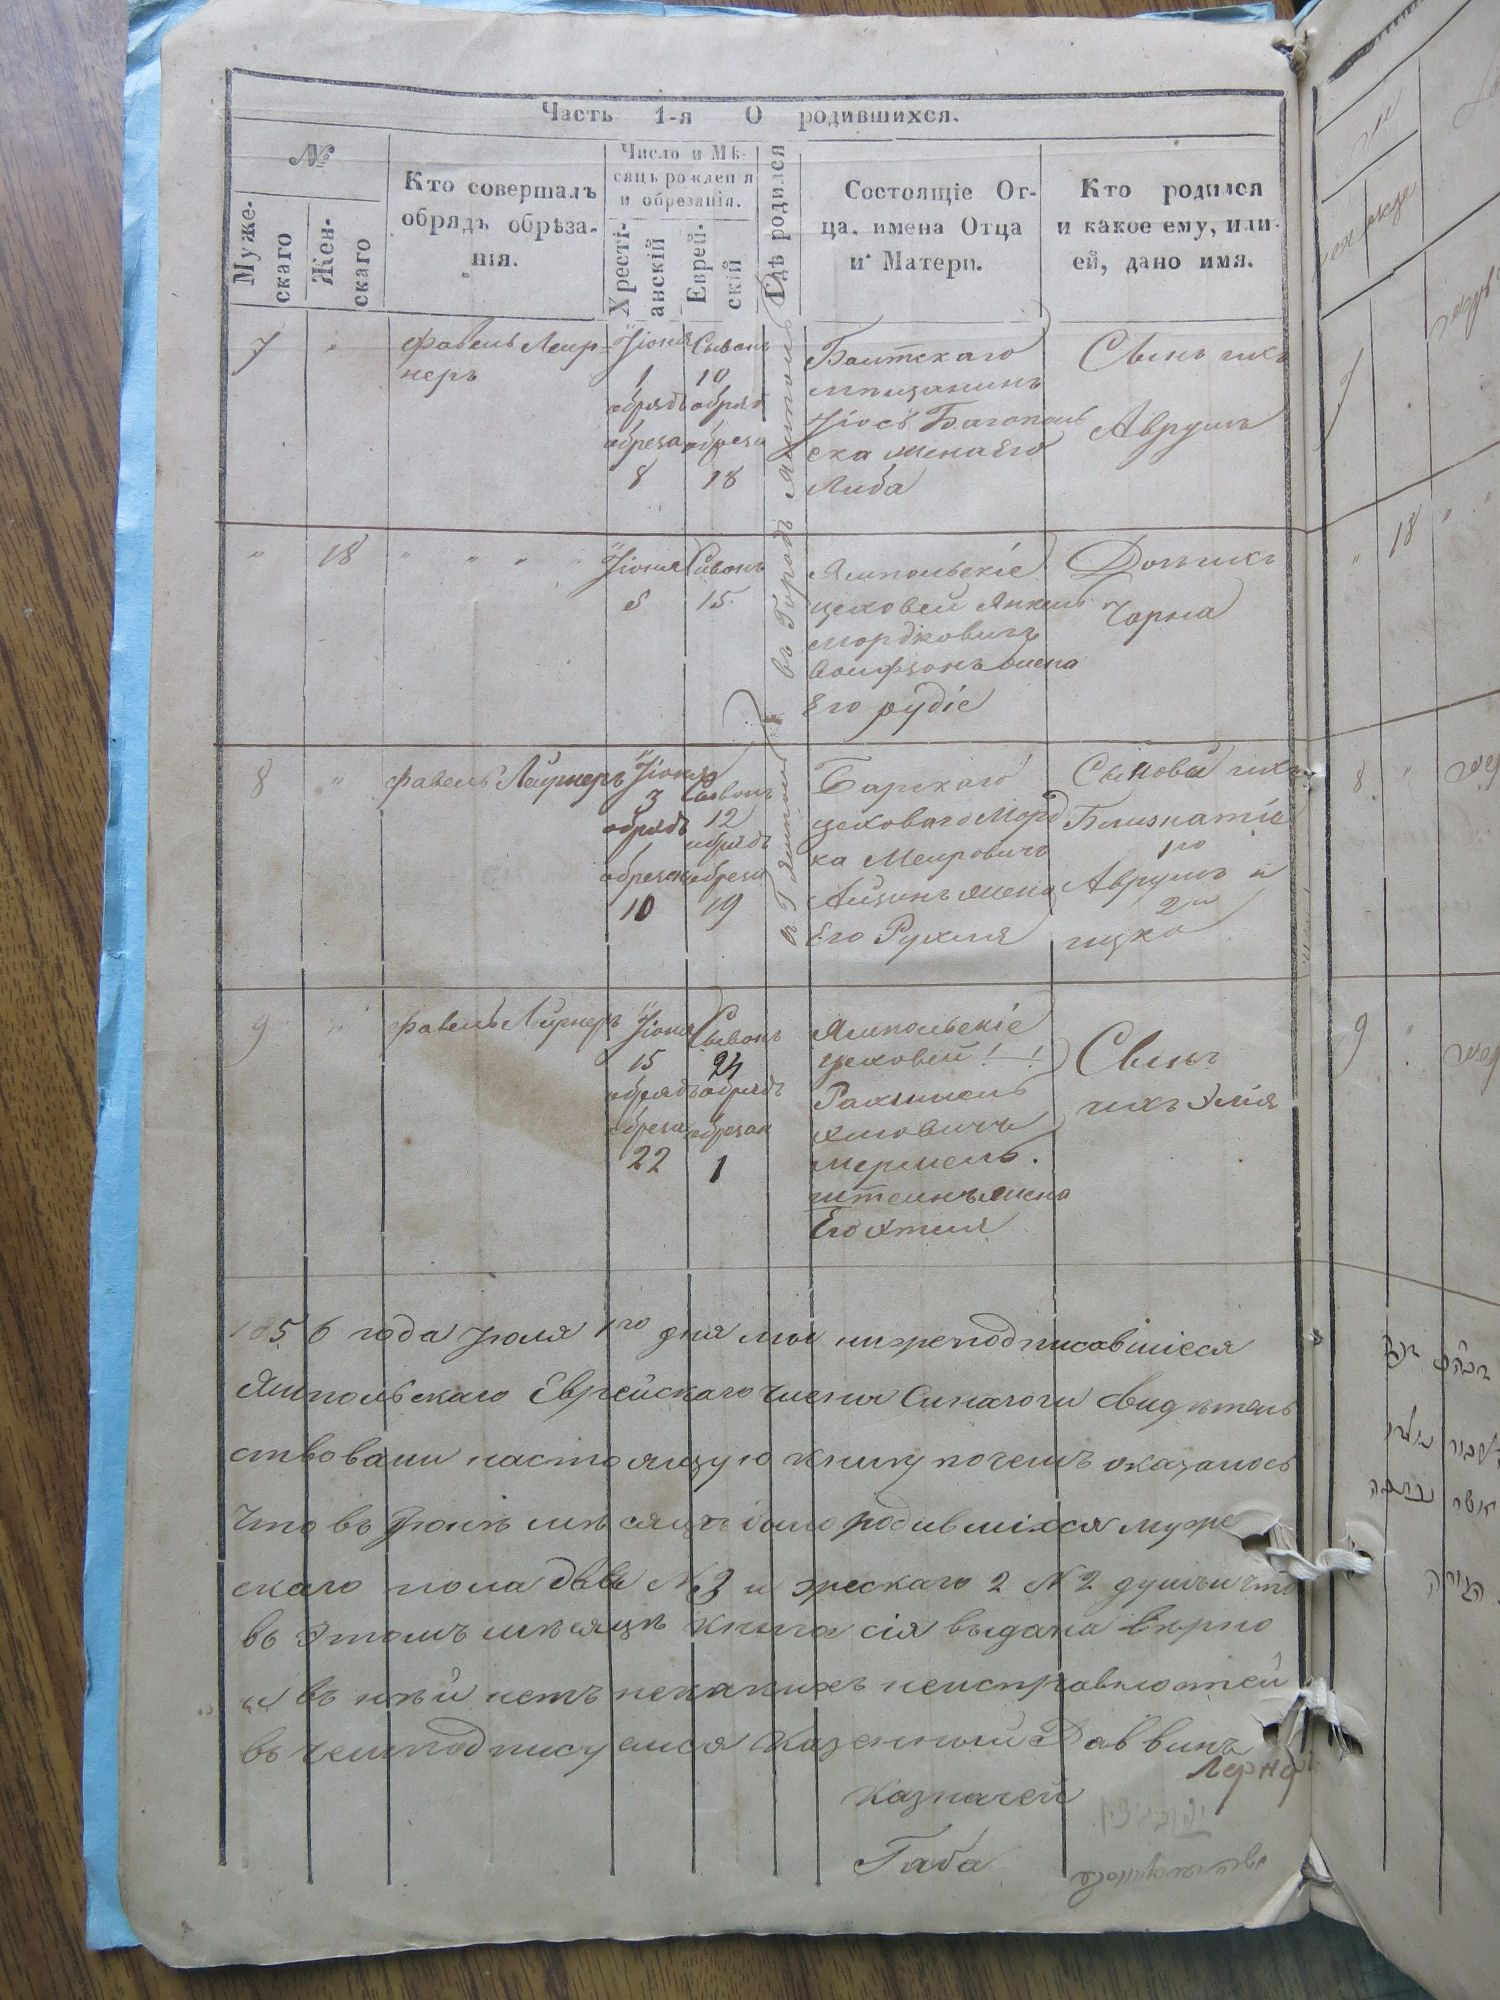 Часть 1-я О родившихся.
№
Муже-
скаго
Жен-
скаго
Кто совершалъ
обрядъ обрѣза-
нія.
Число и Мѣ-
сяцъ рожденія
и обрезанія.
Хресті-
анскій
Еврей-
скій
Гдѣ родился
Состоящіе От-
ца, имена Отца
и Матери.
Кто родился
и какое ему, или
ей, дано имя.
7
"
фавель Леир-
неръ
Іюня
1
обрядъ
обреза
8
Сывонъ
10
обряд
обреза
18
въ Городъ Ямполь
Балтскаго
мещанинъ
Іось Багополь
ска жена Его
Либа
Сынъ ихъ
Аврумъ
"
18
" " " "
Іюня
6
Сивонъ
15
Ямпольскіе
цеховей Янкель
Мордковичъ
Волфзонъ жена
Его рудіе
Дочь ихъ
Чарна
8
"
фавель Лейрнеръ
Іюня
3
обрядъ
обрезан
10
Сывонъ
12
обрядъ
обреза
19
Барскаго
цеховаго Морд
ка Меировичъ
Айзинъ жена
Его Рухля
Сыновья ихъ
Близнатіе
1го
Аврумъ и
2и
ицко
9
"
фавель Лейрнеръ
Іюня
15
обрядъ
обреза
22
Сывонъ
24
обрядъ
обрезан
1
Ямпольскіе
цеховей
Рахмиель
Мермель.
штеинъ жена
Его Этля
Сынъ
ихъ Элія
1856 года Іюля 1го дня мы нижеподписавшіеся
Ямпольскаго Еврейскаго члены Синагоги свидѣтель
ствовали настоящую книгу почемъ оказалось
что въ Іюнѣ мѣсяцѣ было родившіхся муже
скаго пола две №3 и женскаго 2 №2 душъ и что
въ этомъ мѣсяцѣ книга сія выдана вѣрно
и въ ней нетъ некакихъ неисправностей
въ чемъ подписуемся Казенный Раввинъ
Лерне
Казначей
Габа